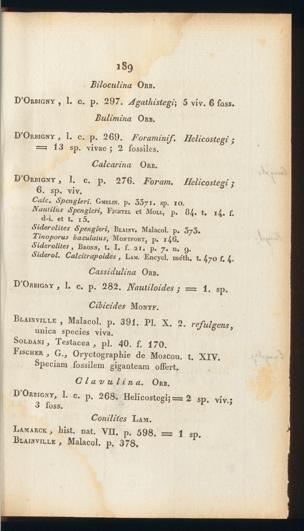 189
Biloculina Orb.
D'Orbigny, l. c. p. 297. Agathistegi; 5 viv. 6 foss.
Bulimina Orb.
D'Orbigny, l. c. p. 269. Foraminif. Helicostegi;
= 13 sp. vivae; 2 fossiles.
Calcarina Orb.
D'Orbigny, l. c. p. 276. Foram. Helicostegi;
6. sp. viv.
Calc. Spengleri. Gmelin. p. 3371. sp. 10.
Nautilus Spengleri, Fichtel et Moll, p. 84. t. 14. f.
d-i. et t. 15.
Siderolites Spengleri, Blainv. Malacol. p. 373.
Tinoporus baculatus, Montfort, p. 146.
Siderolites, Bronn, t. I. f. 21. p. 7. n. 9.
Siderol. Calcitrapoides, Lam. Encycl. méth. t. 470 f. 4.
Cassidulina Orb.
D'Orbigny, l. c. p. 282. Nautiloides; = 1. sp.
Cibicides Montf.
Blainville, Malacol. p. 391. Pl. X. 2. refulgens,
unica species viva.
Soldani, Testacea, pl. 40. f. 170.
Fischer, G., Oryctographie de Moscou. t. XIV.
Speciam fossilem giganteam offert.
Clavulina. Orb.
D'Orbigny, l. c. p. 268. Helicostegi; = 2 sp. viv.;
3 foss.
Conilites Lam.
Lamarck, hist. nat. VII. p. 598. = 1 sp.
Blainville, Malacol. p. 378.